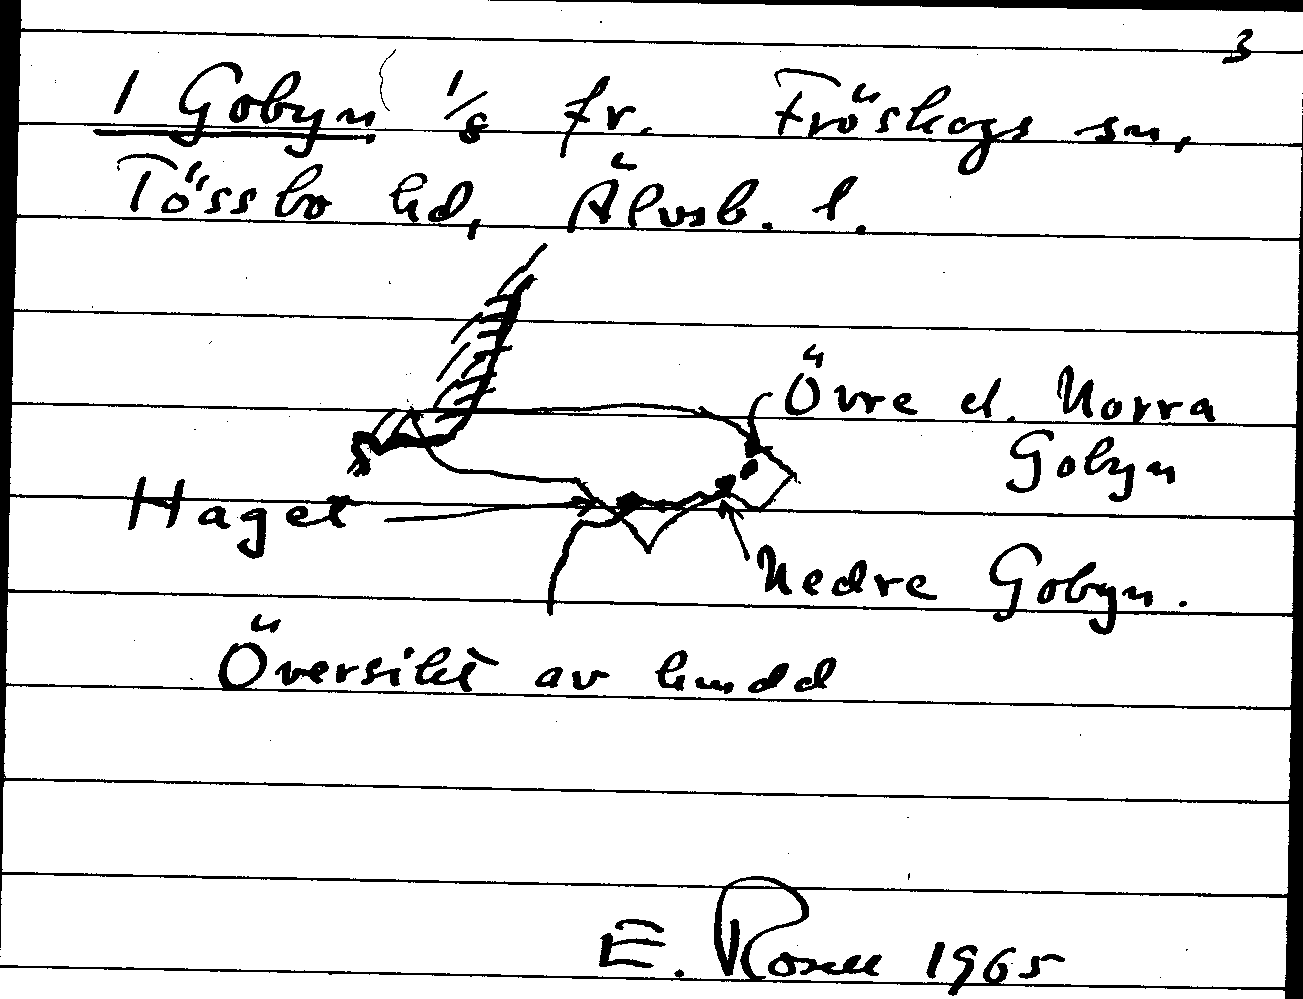 3
1 Gobyn 1/8 fr. Fröskogs sn,
Tössbo hd, Älvsb. l.
Övre el. Norra
Gobyn
Haget
Nedre Gobyn.
Översikt av
E. Rosell 1965